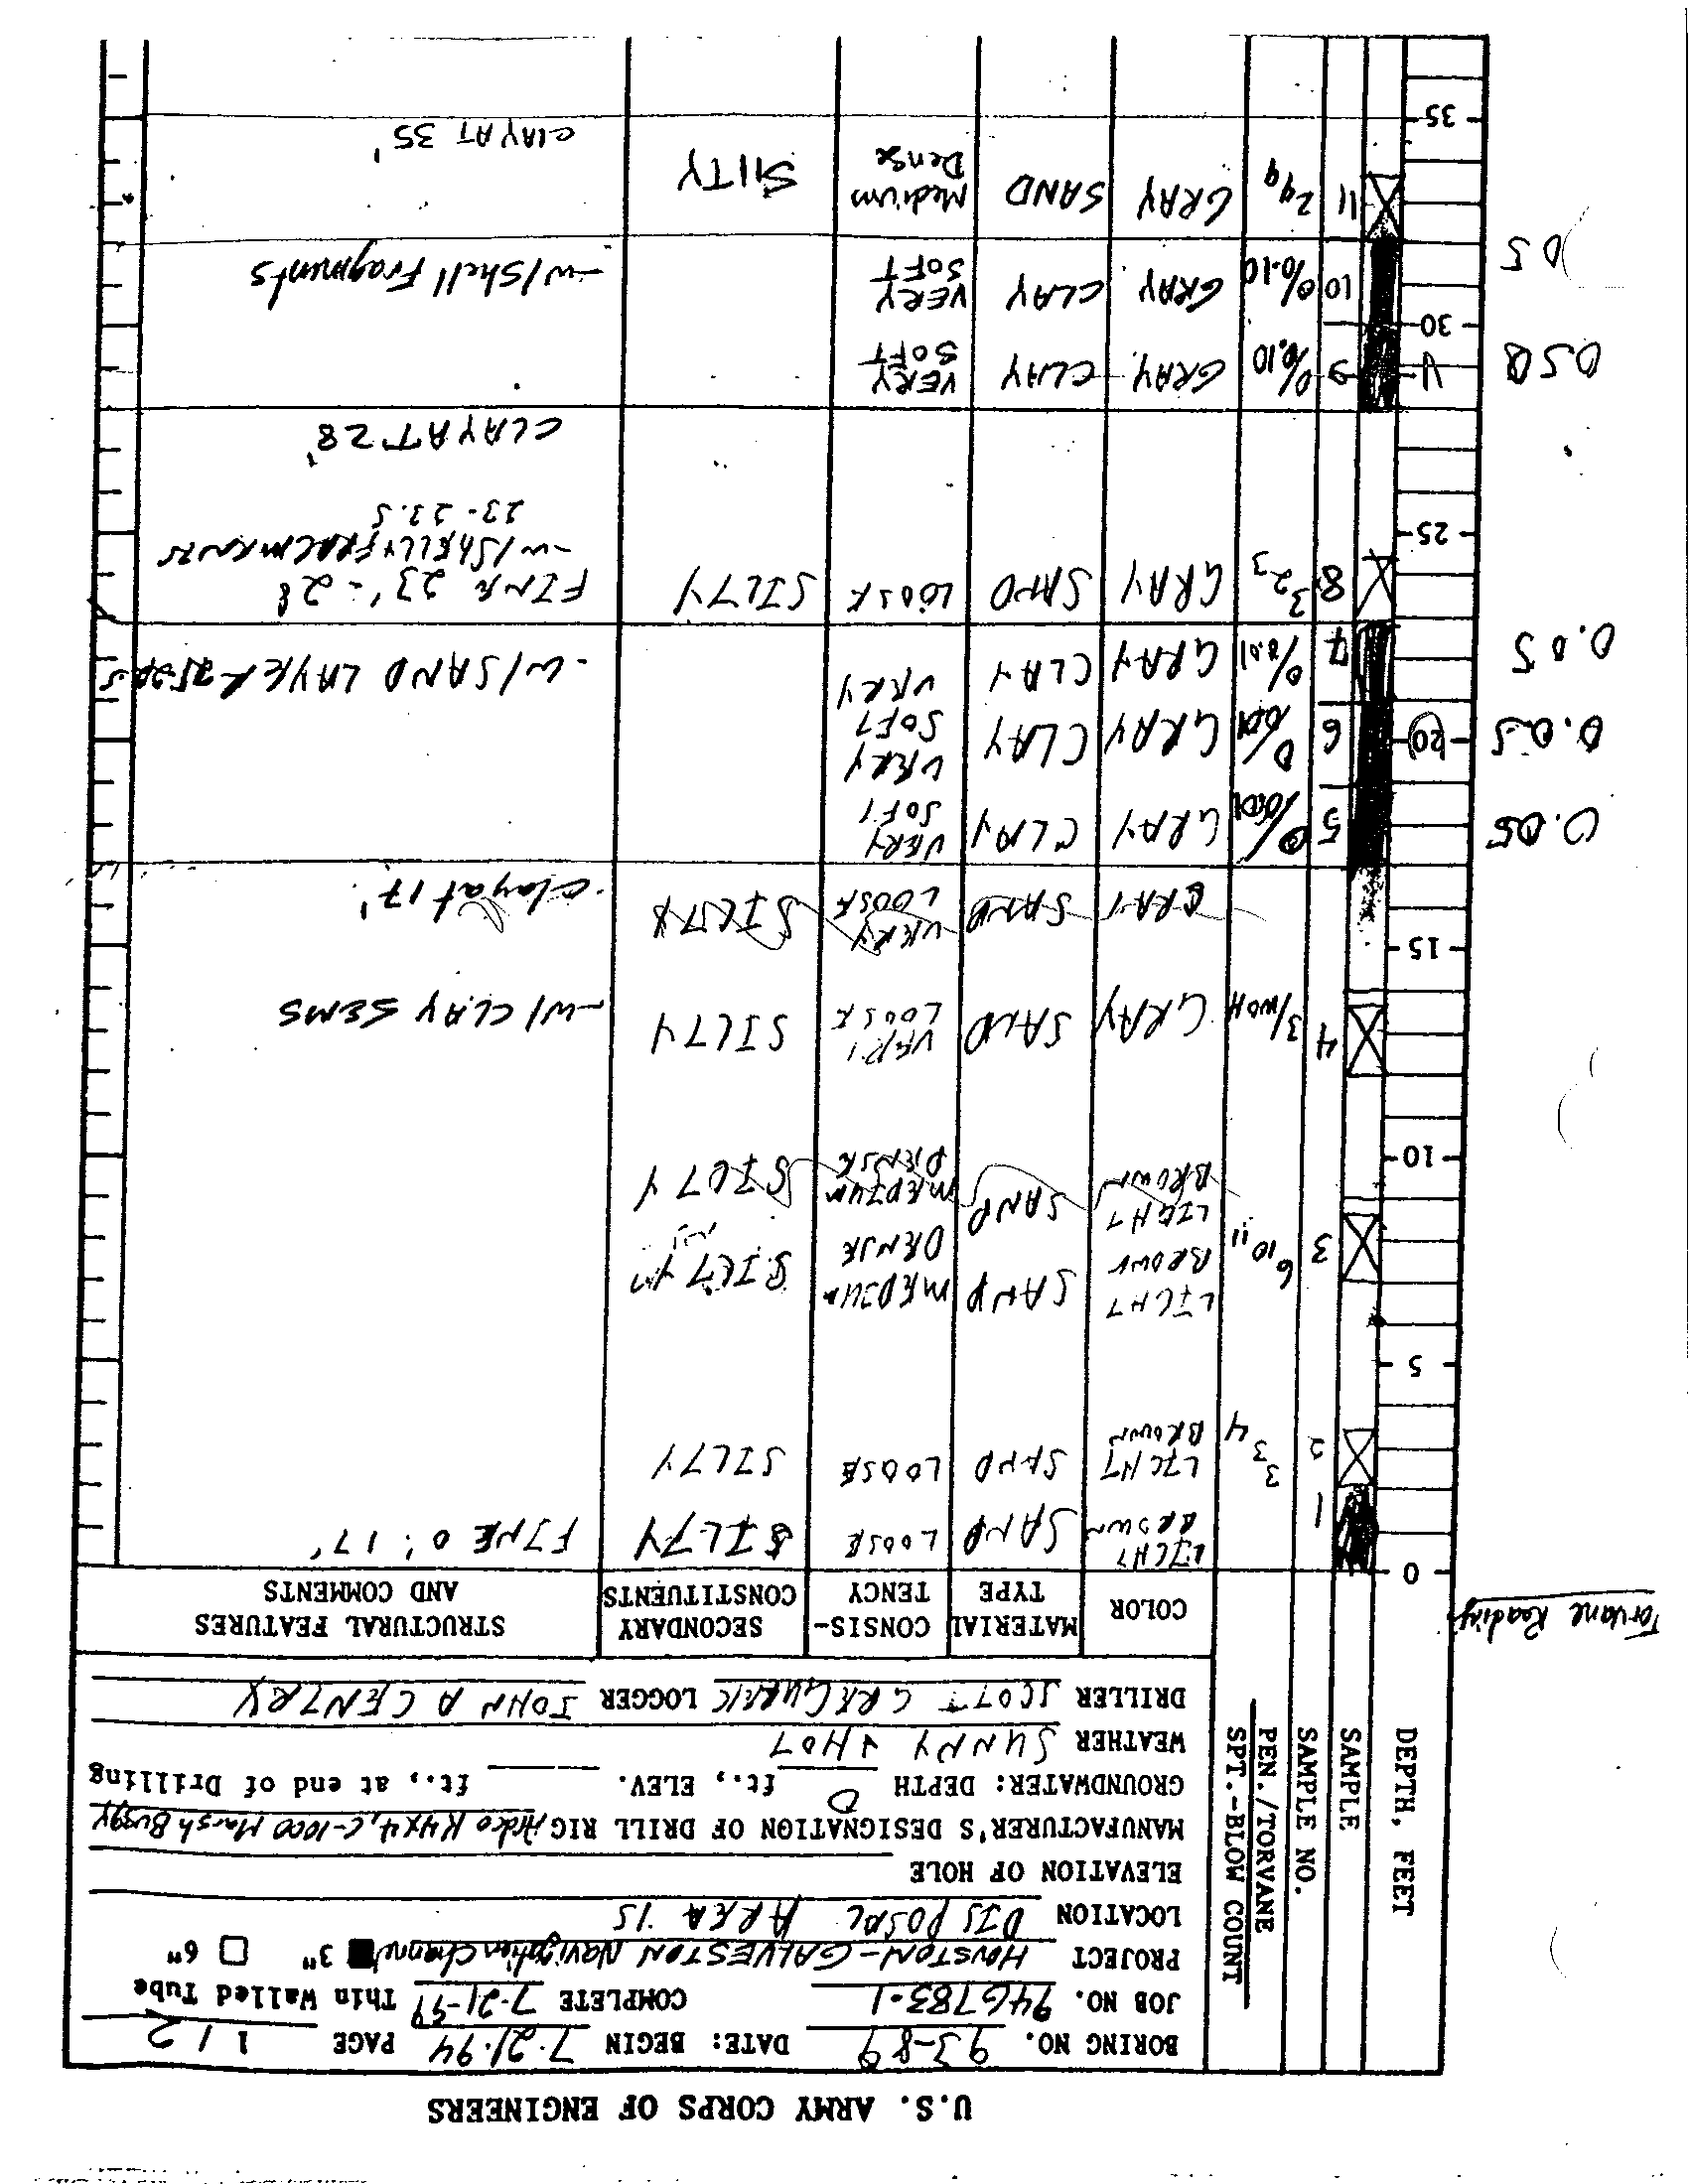 U.S. ARMY CORPS OF ENGINEERS
BORING NO. 93-89 DATE: BEGIN 7-21-94 PAGE 1 / 2
JOB NO. 946783-1 COMPLETE 7-21-94 Thin Walled Tube
PROJECT HOUSTON-GALVESTON Navigation Channel 3" 6"
LOCATION DISPOSAL AREA 15
ELEVATION OF HOLE
MANUFACTURER'S DESIGNATION OF DRILL RIG Ardco K4x4, C-1000 Marsh Buggy
GROUNDWATER: DEPTH 0 ft., ELEV. ft., at end of Drilling
WEATHER SUNNY + HOT
DRILLER SCOTT LOGGER JOHN A GENTRY
DEPTH, FEET
SAMPLE
SAMPLE NO.
PEN./TORVANE
SPT.-BLOW COUNT
COLOR
MATERIAL TYPE
CONSIS-TENCY
SECONDARY CONSTITUENTS
STRUCTURAL FEATURES AND COMMENTS
Torvane Readings
0
1 LIGHT BROWN SAND LOOSE SILTY FINE 0'. 17'
2 3 3 4 LIGHT BROWN SAND LOOSE SILTY
5
3 6 10 11 LIGHT BROWN SAND MEDIUM DENSE SILTY
LIGHT BROWN SAND MEDIUM DENSE SILTY
10
4 3/WOH GRAY SAND VERY LOOSE SILTY -W/ CLAY SEMS
15
GRAY SAND VERY LOOSE SILTY -Clay at 17'
0.05 5 GRAY CLAY VERY SOFT
0.05 20 6 GRAY CLAY VERY SOFT
0.05 7 0/0.01 GRAY CLAY VERY -W/SAND LAYER
8 3 2 3 GRAY SAND LOOSE SILTY FINE 23'-28
-W/SHELLY FRAGMENTS
23-23.5
25
CLAY AT 28'
9 0/0.10 GRAY CLAY VERY SOFT
30
10 0/0.10 GRAY CLAY VERY SOFT -W/Shell Fragments
11 2 4 9 GRAY SAND Medium Dense SILTY
CLAY AT 35'
35